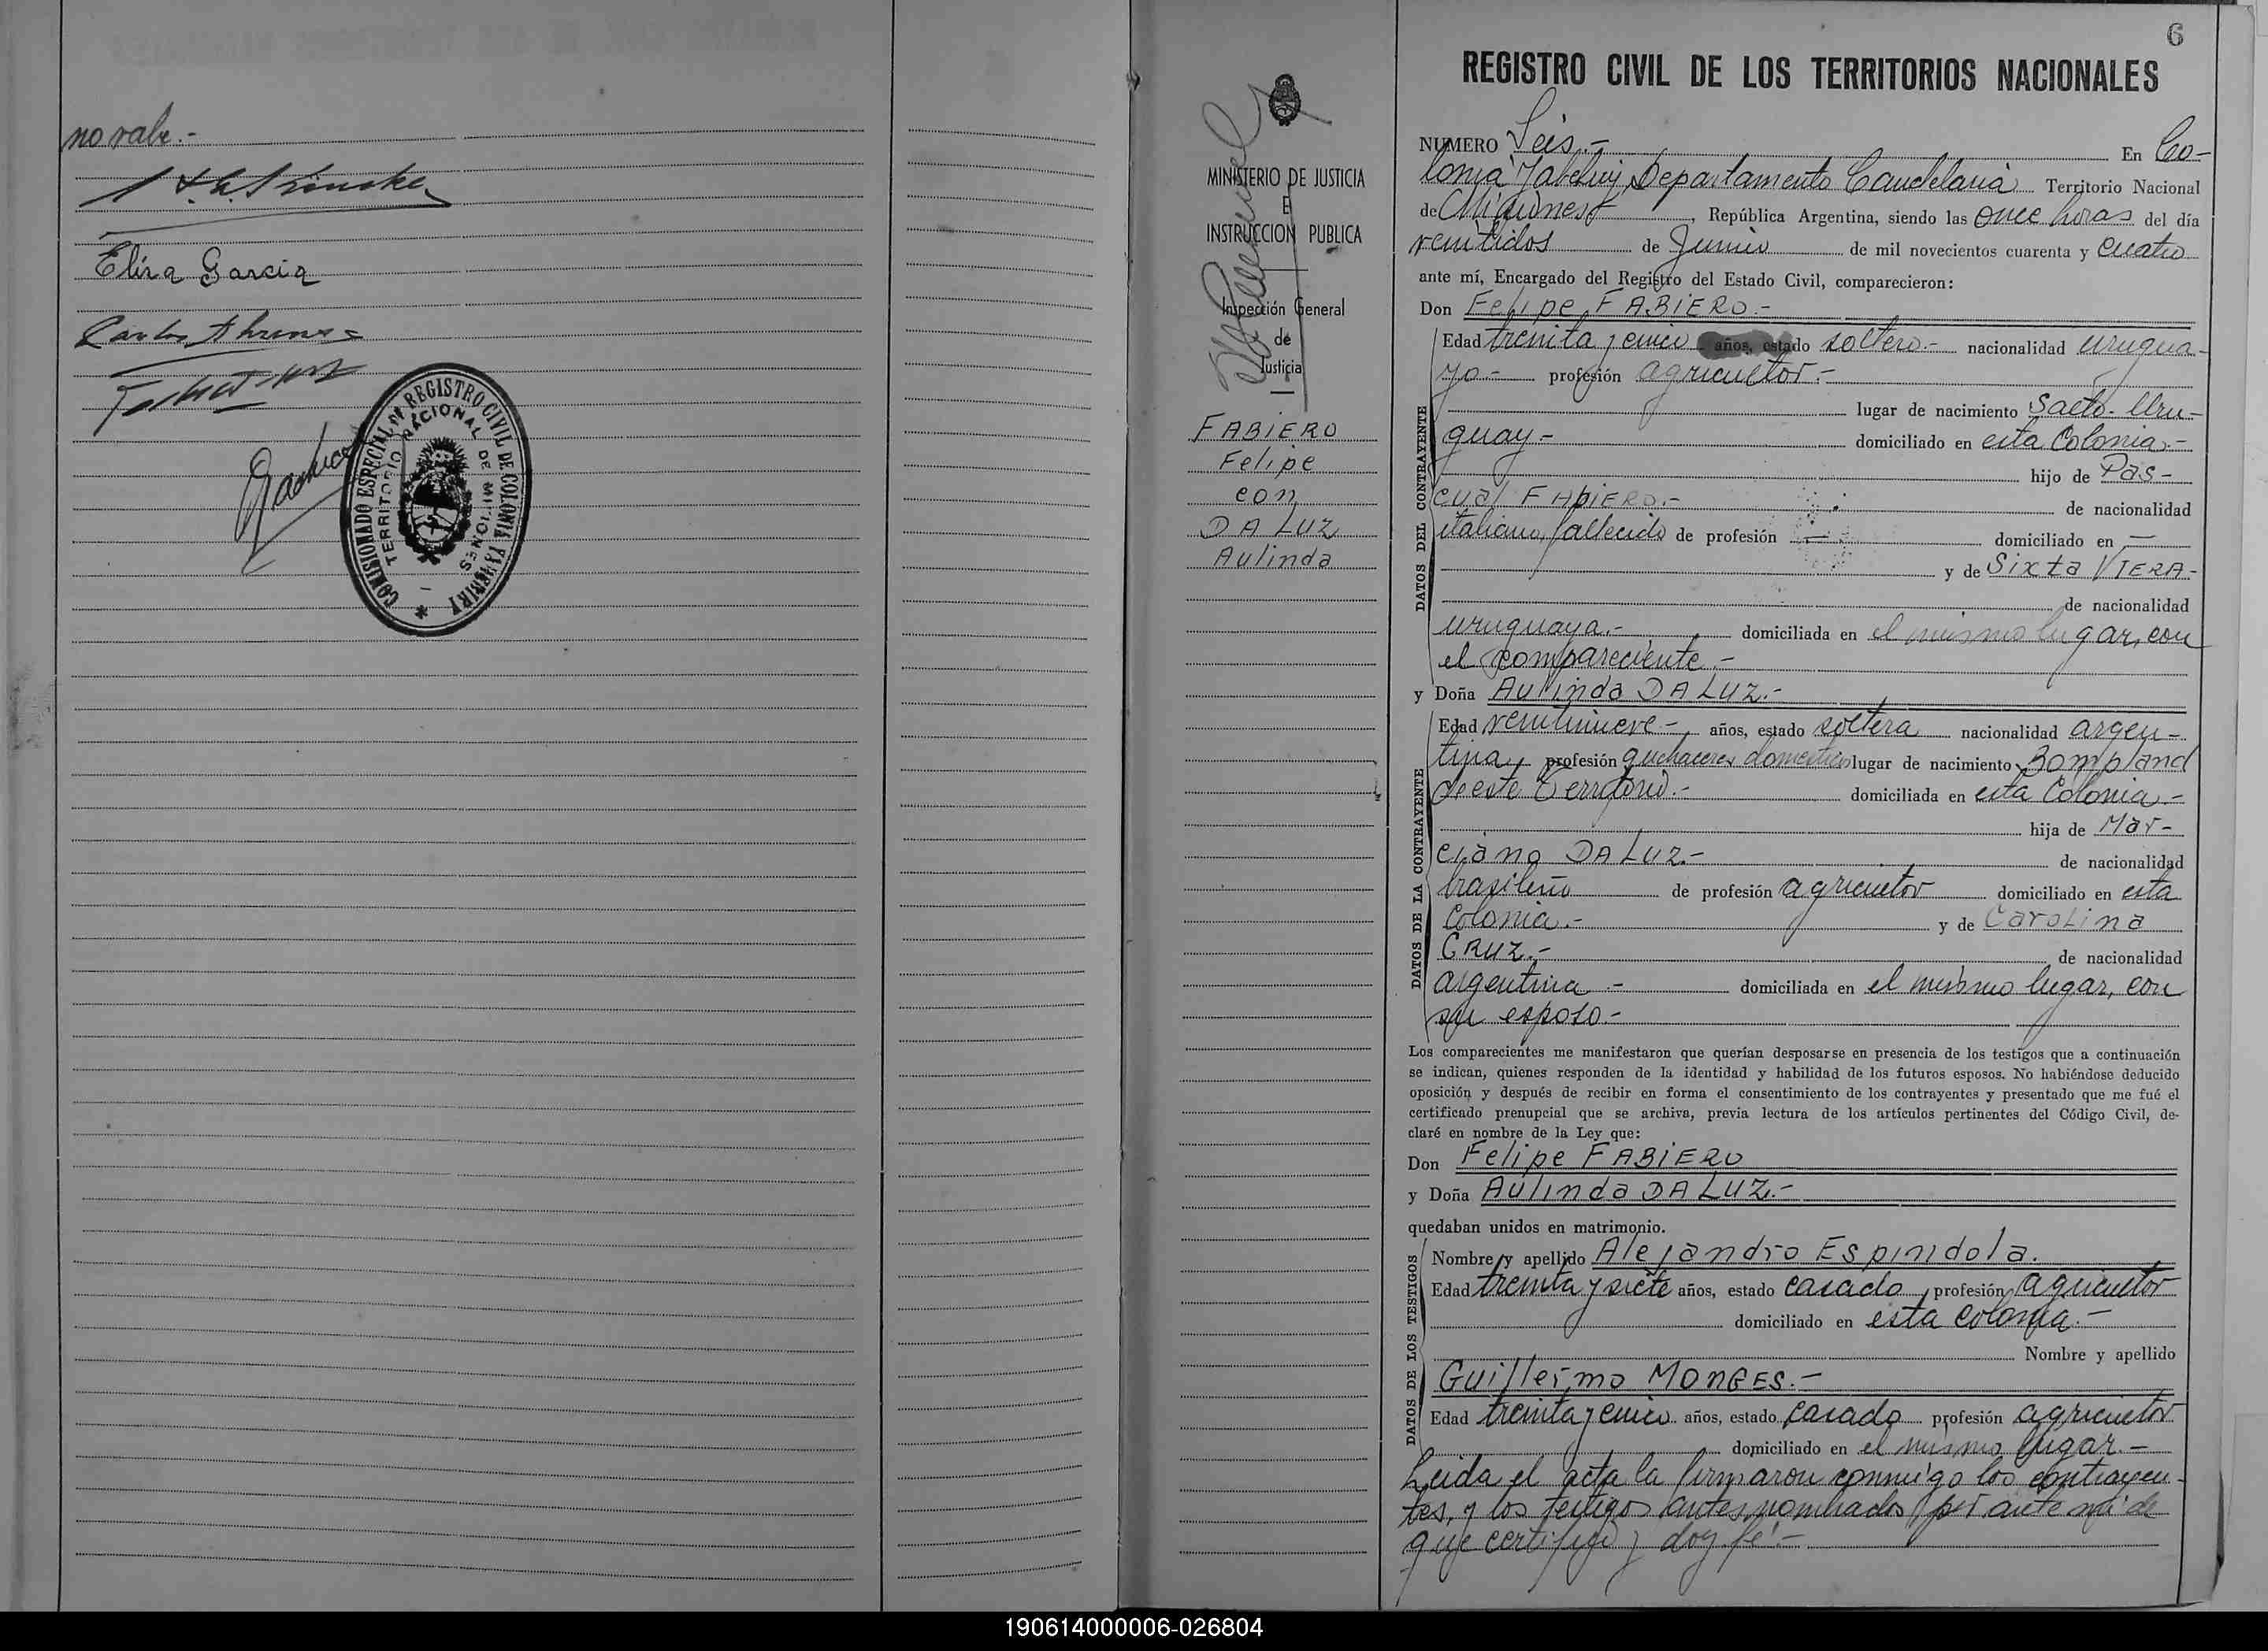 no vale.-
Elira Garcia
Carlos Ahrens
COMISIONADO ESPECIAL DEL REGISTRO CIVIL DE COLONIA YABEBIRY
TERRITORIO NACIONAL DE MISIONES
MINISTERIO DE JUSTICIA
E
INSTRUCCION PUBLICA
Inspección General
de
Justicia
FABIERO
Felipe
con
DA LUZ
Aulinda
6
REGISTRO CIVIL DE LOS TERRITORIOS NACIONALES
NUMERO Seis.- En Co-
lonia Yabebiry Departamento Candelaria Territorio Nacional
de Misiones, República Argentina, siendo las once horas del día
veintidos de Junio de mil novecientos cuarenta y cuatro
ante mí, Encargado del Registro del Estado Civil, comparecieron:
Don Felipe FABIERO.-
Edad treinta y cinco años, estado soltero.- nacionalidad urugua-
yo.- profesión agricultor.-
lugar de nacimiento Salto- Uru-
guay- domiciliado en esta Colonia.-
hijo de Pas-
cual FABIERO.- de nacionalidad
italiano, fallecido de profesión — domiciliado en —
y de Sixta VIERA-
de nacionalidad
uruguaya.- domiciliada en el mismo lugar, con
el compareciente.-
DATOS DEL CONTRAYENTE
y Doña Aulinda DA LUZ.-
Edad veintinueve- años, estado soltera nacionalidad argen-
tina profesión quehaceres domesticos lugar de nacimiento Bompland
de este Territorio.- domiciliada en esta Colonia.-
hija de Mar-
ciano DA LUZ.- de nacionalidad
brasileño de profesión agricultor domiciliado en esta
Colonia.- y de Carolina
CRUZ.- de nacionalidad
argentina.- domiciliada en el mismo lugar, con
su esposo.-
DATOS DE LA CONTRAYENTE
Los comparecientes me manifestaron que querían desposarse en presencia de los testigos que a continuación
se indican, quienes responden de la identidad y habilidad de los futuros esposos. No habiéndose deducido
oposición y después de recibir en forma el consentimiento de los contrayentes y presentado que me fué el
certificado prenupcial que se archiva, previa lectura de los artículos pertinentes del Código Civil, de-
claré en nombre de la Ley que:
Don Felipe FABIERO
y Doña Aulinda DA LUZ.-
quedaban unidos en matrimonio.
Nombre y apellido Alejandro Espindola.
Edad treinta y siete años, estado casado, profesión agricultor
domiciliado en esta colonia.-
Nombre y apellido
Guillermo MONGES.-
Edad treinta y cinco años, estado casado profesión agricultor
domiciliado en el mismo lugar.-
DATOS DE LOS TESTIGOS
Leida el acta la firmaron conmigo los contrayen-
tes, y los testigos antes nombrados por ante mi de
que certifico y doy fé.-
190614000006-026804